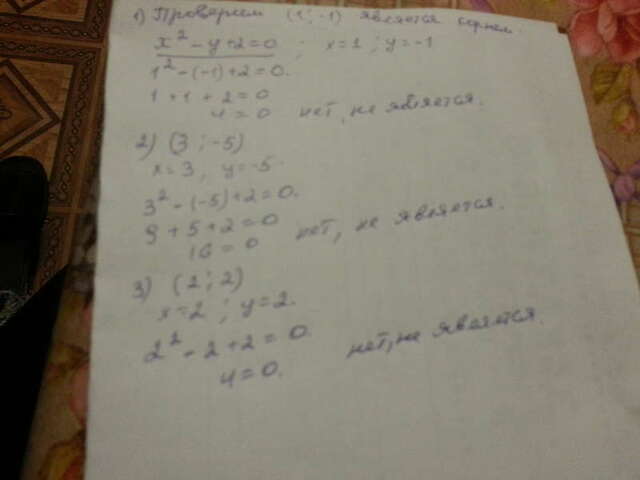 1) Проверяем (1; -1) является корнем.
x² - y + 2 = 0 ; x = 1 ; y = -1
1² - (-1) + 2 = 0.
1 + 1 + 2 = 0
4 = 0 нет, не является.
2) (3 ; -5)
x = 3, y = -5.
3² - (-5) + 2 = 0.
9 + 5 + 2 = 0
16 = 0 нет, не является.
3) (2 ; 2)
x = 2 ; y = 2.
2² - 2 + 2 = 0
4 = 0. нет, не является.